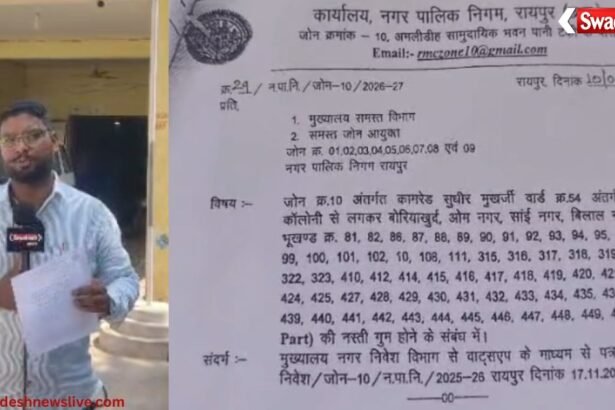 कार्यालय, नगर पालिक निगम, रायपुर
जोन क्रमांक – 10, अमलीडीह सामुदायिक भवन पानी
Email:- rmczone10@gmail.com
क्र. 29 / न.पा.नि. / जोन-10 / 2026-27
रायपुर, दिनांक 10/0
प्रति,
1. मुख्यालय समस्त विभाग
2. समस्त जोन आयुक्त
जोन क्र. 01,02,03,04,05,06,07,08 एवं 09
नगर पालिक निगम रायपुर
विषय :- जोन क्र.10 अंतर्गत कामरेड सुधीर मुखर्जी वार्ड क्र.54 अंतर्ग
कॉलोनी से लगकर बोरियाखुर्द, ओम नगर, सांई नगर, बिलाल
भूखण्ड क्र. 81, 82, 86, 87, 88, 89, 90, 91, 92, 93, 94, 95,
99, 100, 101, 102, 10, 108, 111, 315, 316, 317, 318, 319
322, 323, 410, 412, 414, 415, 416, 417, 418, 419, 420, 42
424, 425, 427, 428, 429, 430, 431, 432, 433, 434, 435, 43
439, 440, 441, 442, 443, 444, 445, 446, 447, 448, 449, 4
Part) की नस्ती गुम होने के संबंध में।
संदर्भ :- मुख्यालय नगर निवेश विभाग से वाट्सएप के माध्यम से पत्र
निवेश/जोन-10/न.पा.नि./2025-26 रायपुर दिनांक 17.11.20
00
Swadesh
Swa
deshnewslive.com